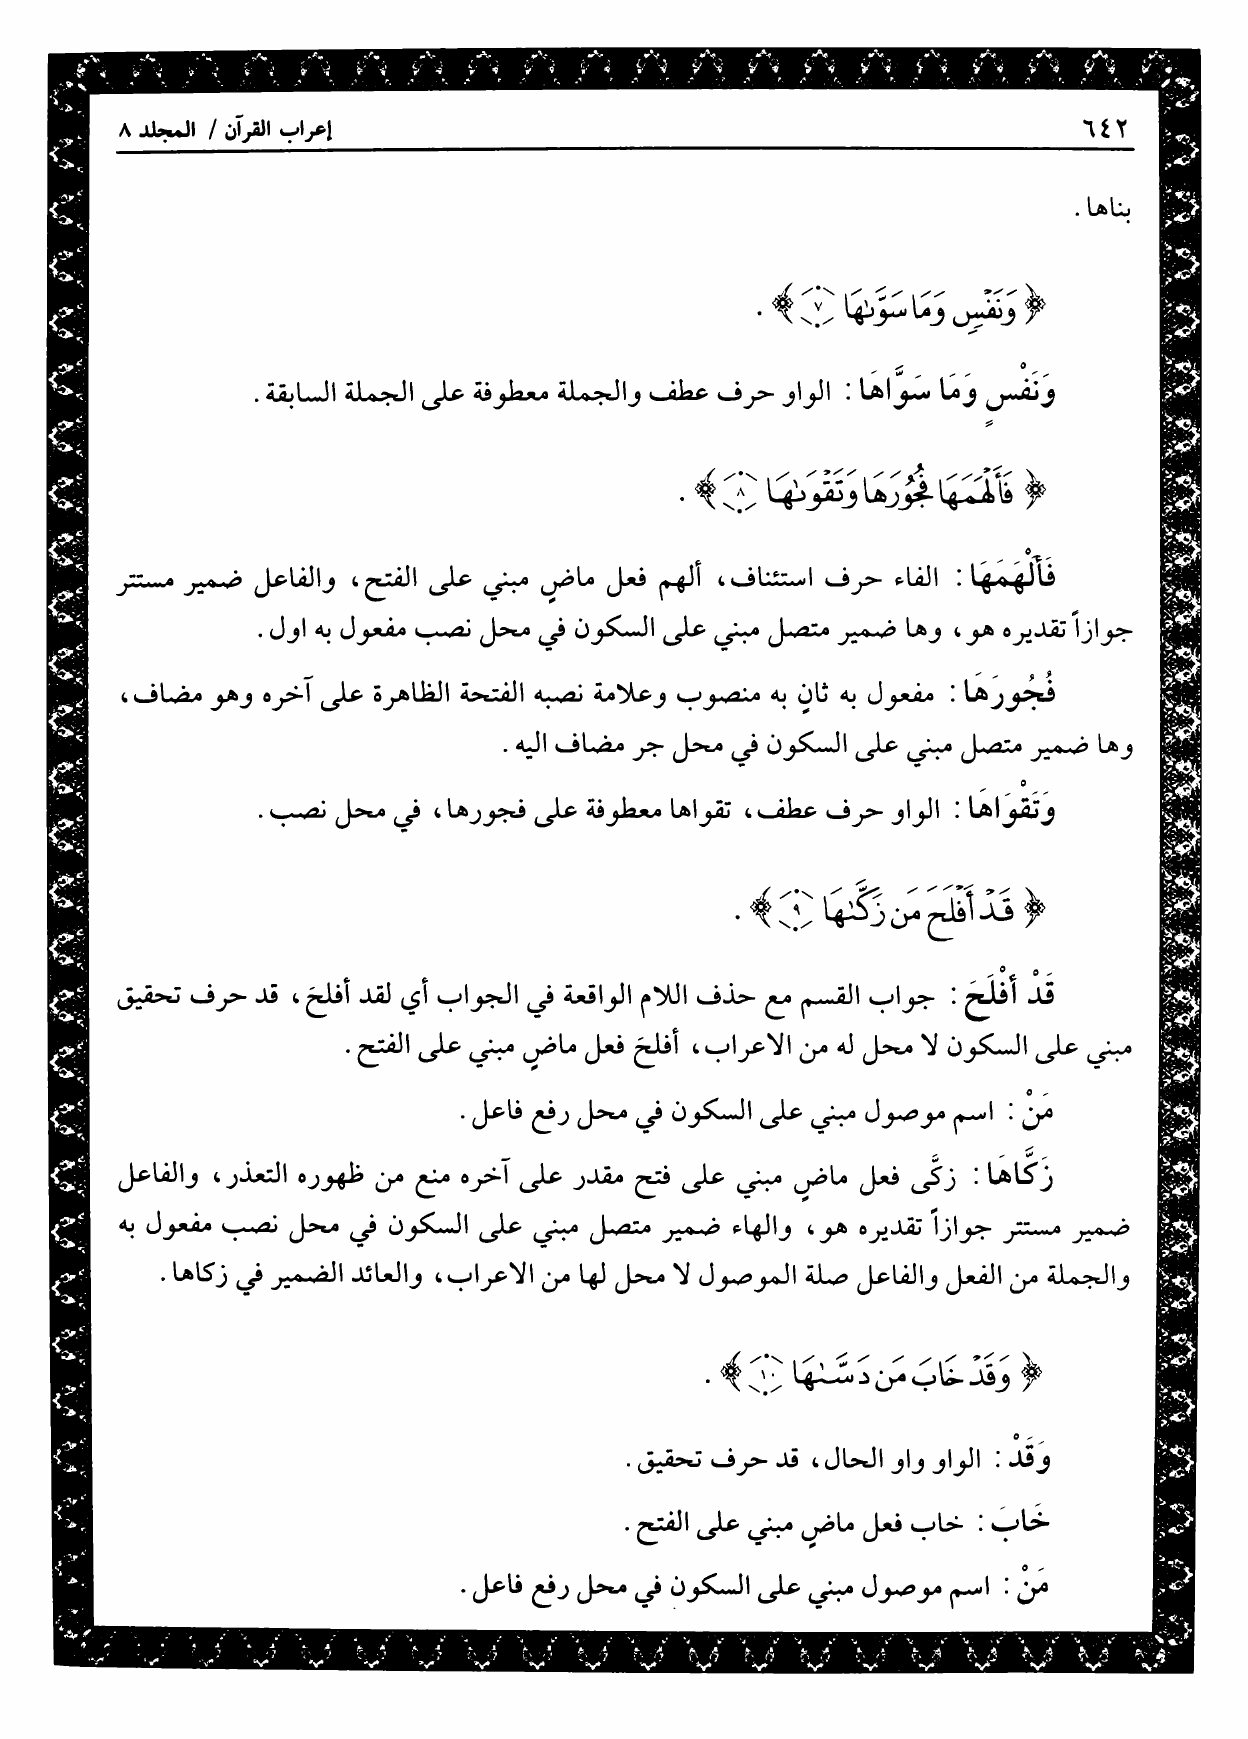 ٦٤٢ إعراب القرآن / المجلد ٨
بناها .
﴿ وَنَفْسٍ وَمَا سَوَّىٰهَا ٧ ﴾ .
وَنَفْسٍ وَمَا سَوَّاهَا : الواو حرف عطف والجملة معطوفة على الجملة السابقة .
﴿ فَأَلْهَمَهَا فُجُورَهَا وَتَقْوَىٰهَا ٨ ﴾ .
فَأَلْهَمَهَا : الفاء حرف استئناف، ألهم فعل ماضٍ مبني على الفتح، والفاعل ضمير مستتر
جوازاً تقديره هو، وها ضمير متصل مبني على السكون في محل نصب مفعول به اول .
فُجُورَهَا : مفعول به ثانٍ به منصوب وعلامة نصبه الفتحة الظاهرة على آخره وهو مضاف،
وها ضمير متصل مبني على السكون في محل جر مضاف اليه .
وَتَقْوَاهَا : الواو حرف عطف، تقواها معطوفة على فجورها، في محل نصب .
﴿ قَدْ أَفْلَحَ مَن زَكَّىٰهَا ٩ ﴾ .
قَدْ أَفْلَحَ : جواب القسم مع حذف اللام الواقعة في الجواب أي لقد أفلحَ، قد حرف تحقيق
مبني على السكون لا محل له من الاعراب، أفلحَ فعل ماضٍ مبني على الفتح .
مَنْ : اسم موصول مبني على السكون في محل رفع فاعل .
زَكَّاهَا : زكَّى فعل ماضٍ مبني على فتح مقدر على آخره منع من ظهوره التعذر، والفاعل
ضمير مستتر جوازاً تقديره هو، والهاء ضمير متصل مبني على السكون في محل نصب مفعول به
والجملة من الفعل والفاعل صلة الموصول لا محل لها من الاعراب، والعائد الضمير في زكاها .
﴿ وَقَدْ خَابَ مَن دَسَّىٰهَا ١٠ ﴾ .
وَقَدْ : الواو واو الحال، قد حرف تحقيق .
خَابَ : خاب فعل ماضٍ مبني على الفتح .
مَنْ : اسم موصول مبني على السكون في محل رفع فاعل .